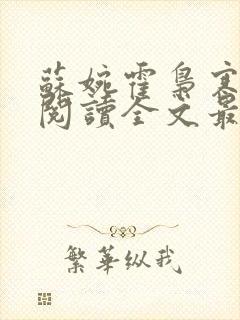 蘇婉霍梟寒
閱讀全文最
繁華纵我